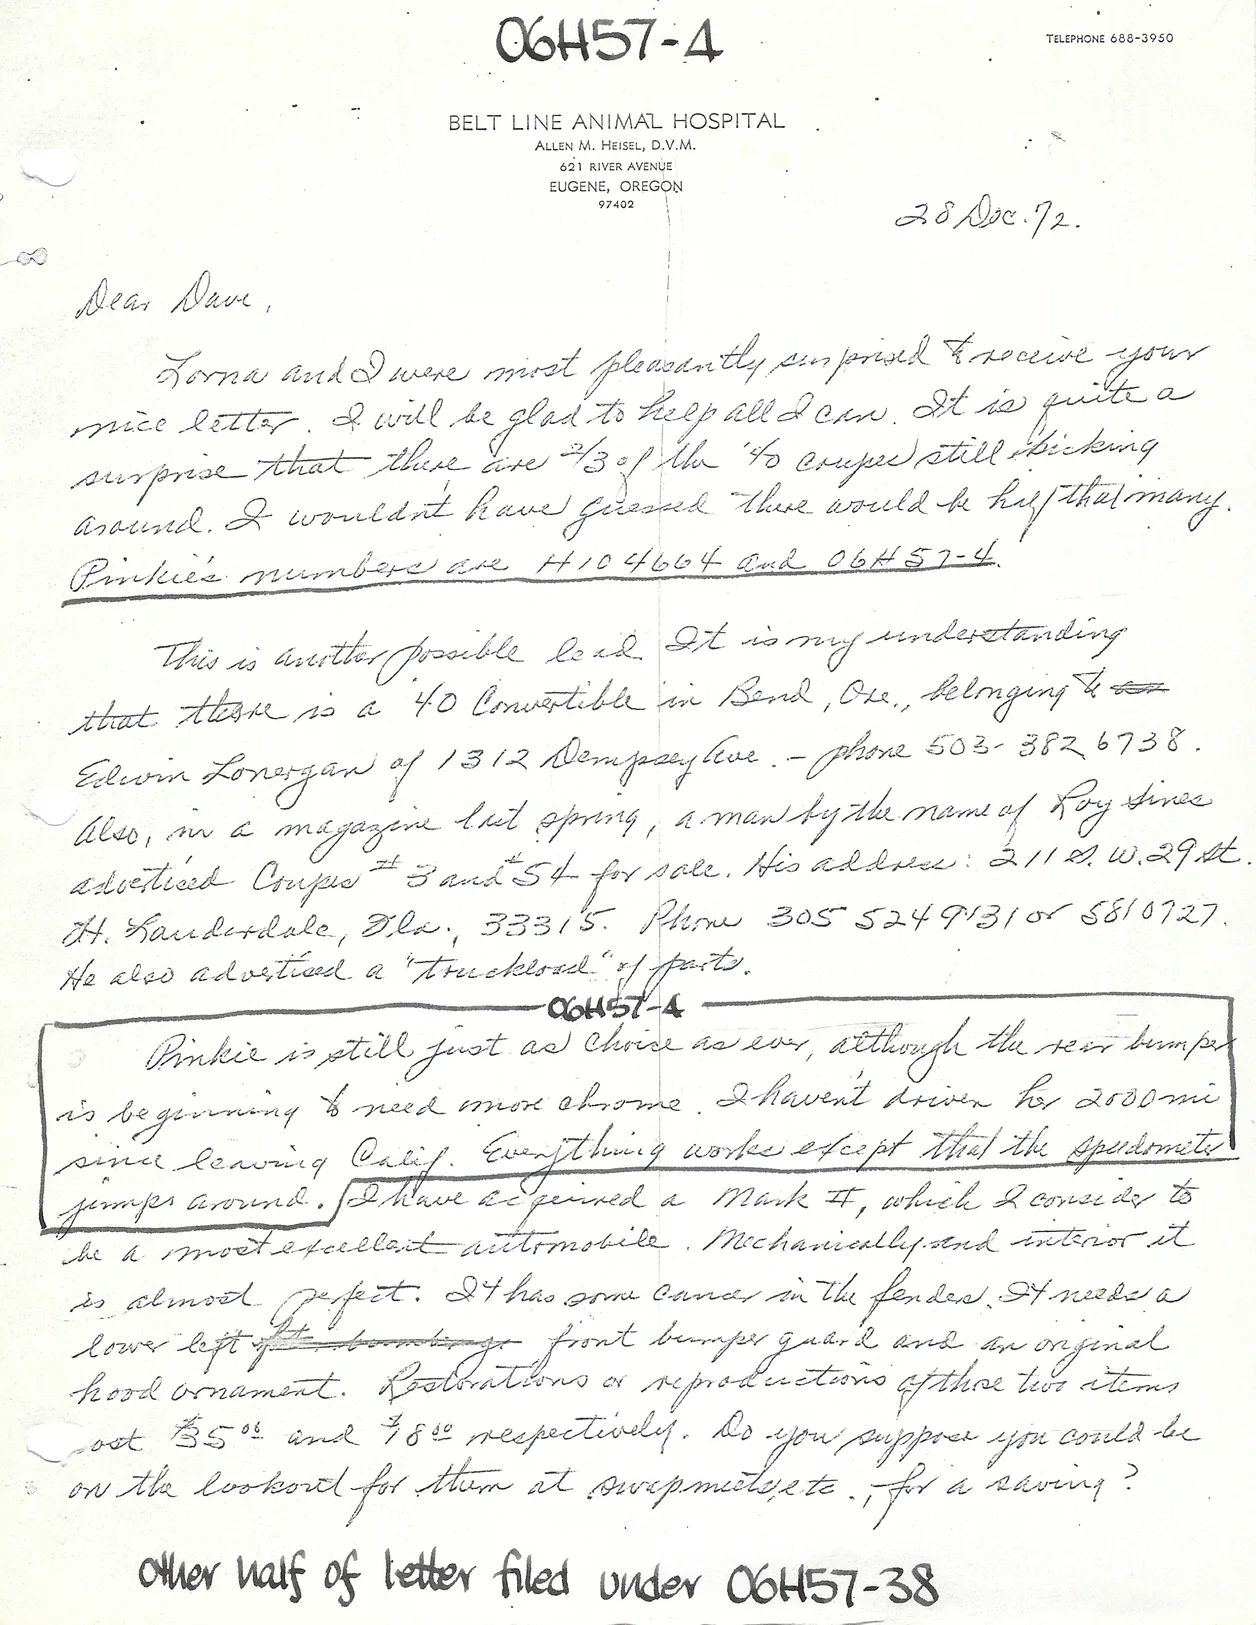 06H57-4
TELEPHONE 688-3950
BELT LINE ANIMAL HOSPITAL
ALLEN M. HEISEL, D.V.M.
621 RIVER AVENUE
EUGENE, OREGON
97402
28 Dec. 72.
Dear Dave,
Lorna and I were most pleasantly surprised to receive your
nice letter. I will be glad to help all I can. It is quite a
surprise that there are 2/3 of the '40 coupes still kicking
around. I wouldn't have guessed there would be half that many.
Pinkie's numbers are H104664 and 06H57-4.
This is another possible lead. It is my understanding
that there is a '40 Convertible in Bend, Ore., belonging to
Edwin Lonergan of 1312 Dempsey Ave. - phone 503-382 6738.
Also, in a magazine last spring, a man by the name of Roy Sines
advertised Coupes #3 and #54 for sale. His address: 211 S.W. 29 St.
Ft. Lauderdale, Fla., 33315. Phone 305 524 9131 or 581 0727.
He also advertised a "truckload" of parts.
06H57-4
Pinkie is still just as choice as ever, although the rear bumper
is beginning to need more chrome. I haven't driven her 2000 mi
since leaving Calif. Everything works except that the speedometer
jumps around. I have acquired a Mark II, which I consider to
be a most excellent automobile. Mechanically and interior it
is almost perfect. It has some cancer in the fenders. It needs a
lower left front bumper guard and an original
hood ornament. Restorations or reproductions of those two items
cost $35.00 and $18.00 respectively. Do you suppose you could be
on the lookout for them at swapmeets, etc., for a saving?
other half of letter filed under 06H57-38